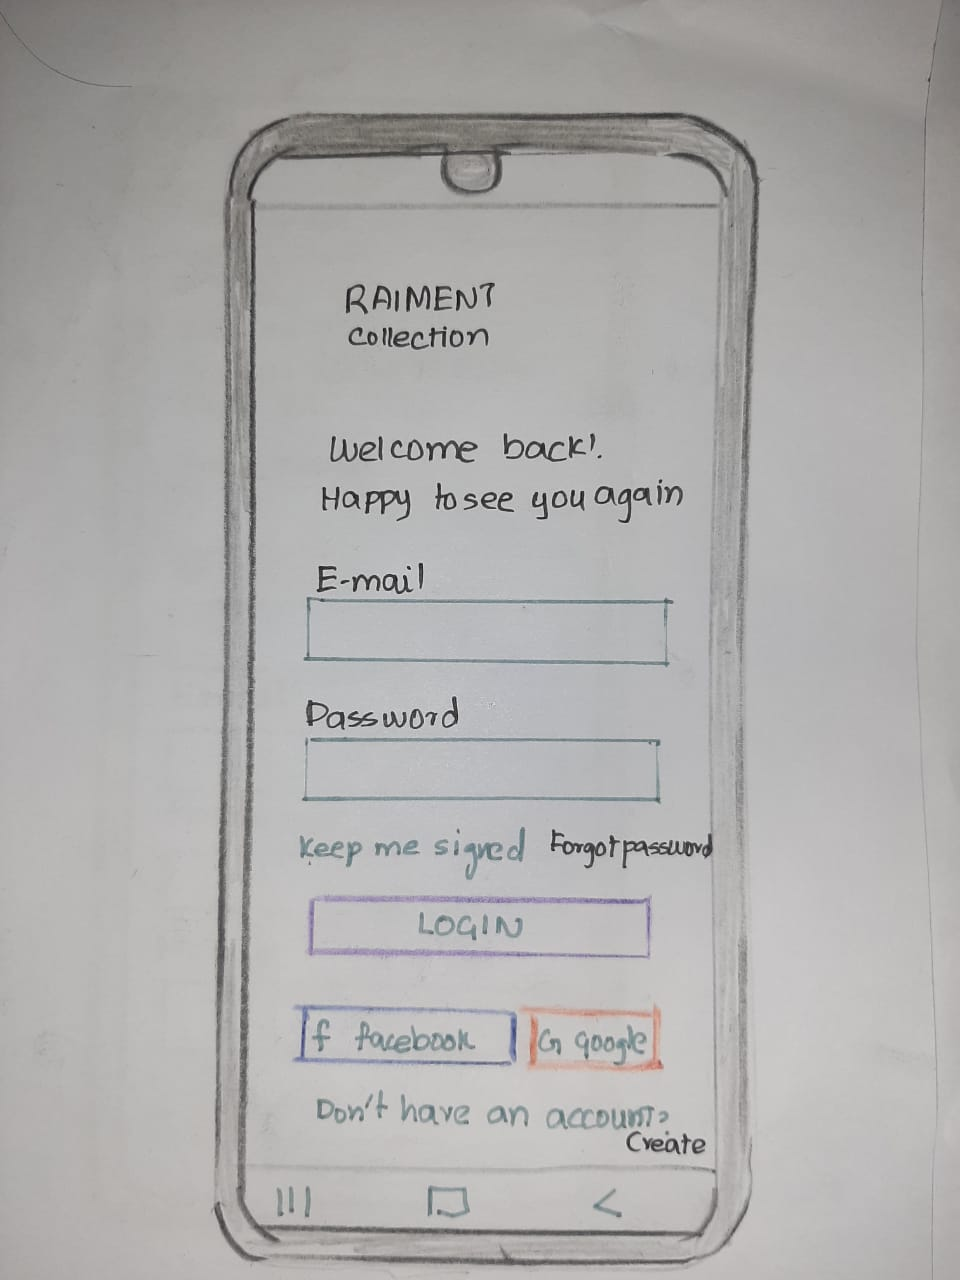 RAIMENT
Collection
Welcome back!.
Happy to see you again
E-mail
Password
Keep me signed Forgot password
LOGIN
f facebook G google
Don't have an account?
Create